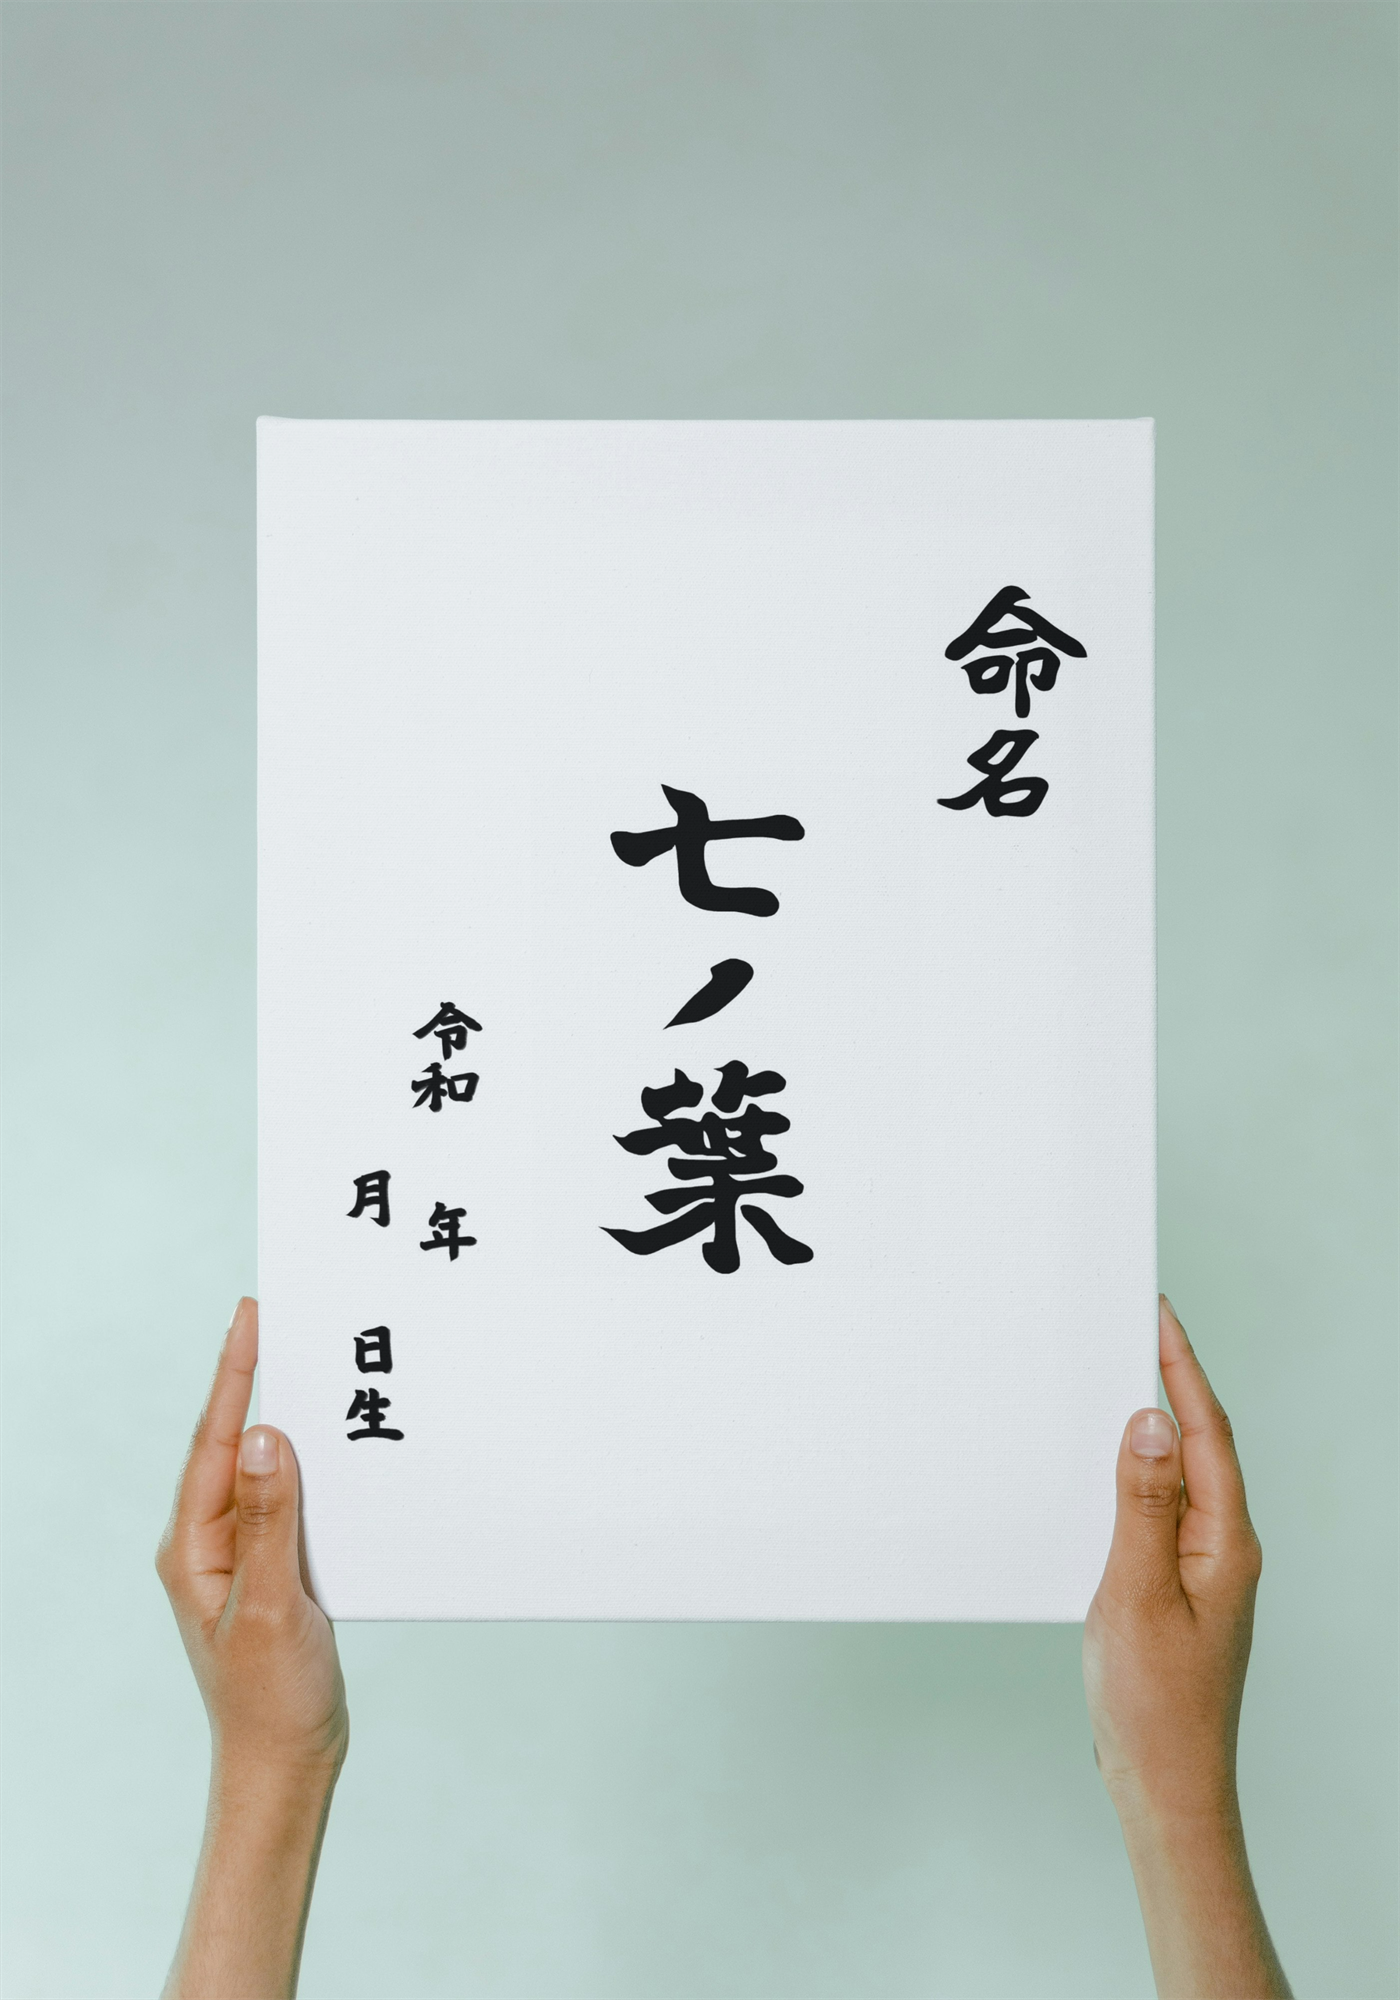 命名
七ノ葉
令和 年
月 日生